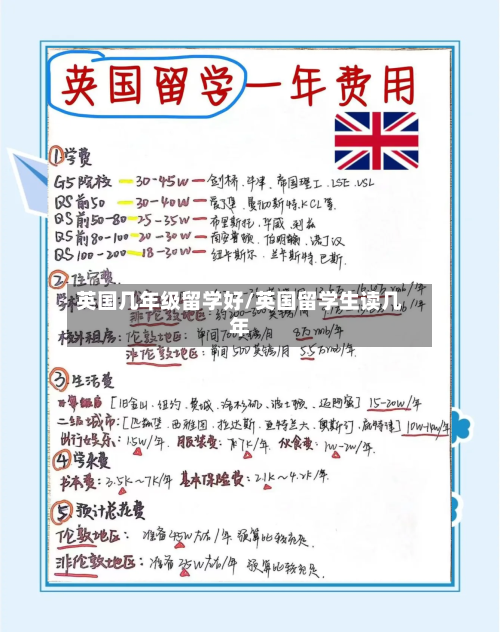 英国留学一年费用
①学费
G5院校 — 30-45W — 剑桥、牛津、帝国理工、LSE、USL
QS前50 — 30-40W — 爱丁堡、曼彻斯特、KCL等
QS前50-80 — 25-35W — 布里斯托、华威、利兹
QS前80-100 — 20-30W — 南安普顿、伯明翰、诺丁汉
QS100-200 — 18-30W — 纽卡斯尔、兰卡斯特、巴斯.
②住宿费
英国几年级留学好/英国留学生读几年
校外租房: 伦敦地区: 单间700英镑/月 8万rmb/年
非伦敦地区: 单间500英镑/月 5.5万rmb/年.
③.生活费
[旧金山、纽约、费城、洛杉矶、波士顿、迈阿密] 15-20W/年
二级城市: [匹兹堡、西雅图、拉达斯、亚特兰大、奥斯订、底特律] 10W-14W/年
出行娱乐: 1.5W/年. 服装费: 5k-7K/年、伙食费: 1W-2W/年.
④学杂费
书本费: 3.5K~7K/年 基本保险费: 2.1K~4.2K/年.
⑤.预计总花费
伦敦地区: 准备45W左右/年 预算比较充足.
非伦敦地区: 准备35W左右/年 预算比较充足.